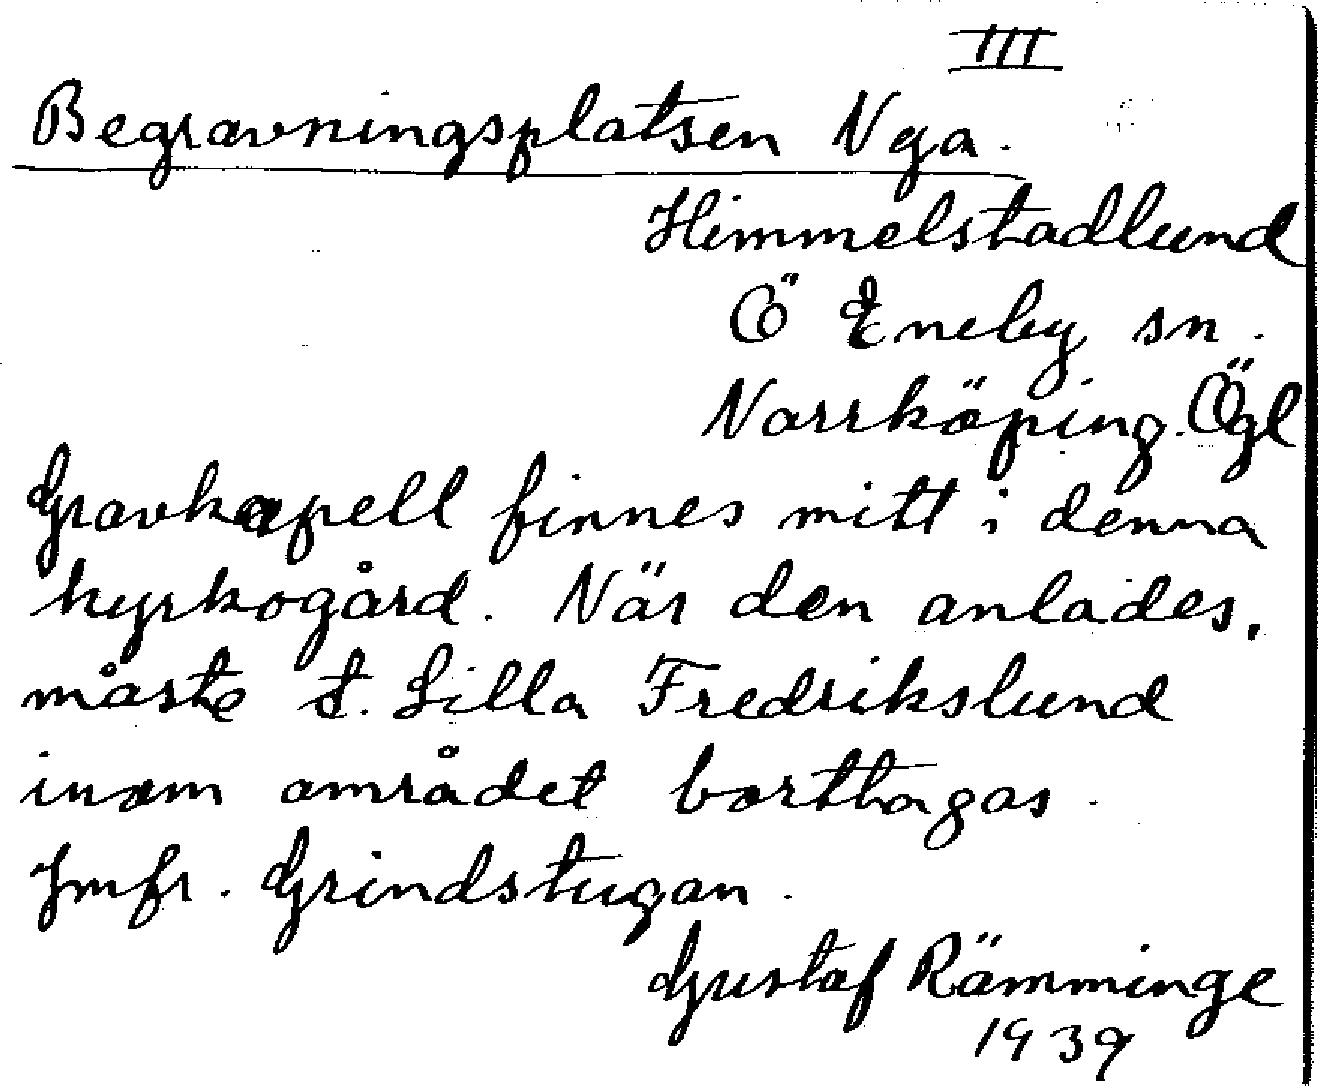 III
Begravningsplatsen Nya.
Himmelstadlund
Ö Eneby sn.
Norrköping. Ögl
Gravkapell finnes mitt i denna
kyrkogård. När den anlades,
måste t. Lilla Fredrikslund
inom området borttagas.
Jmfr. Grindstugan.
Gustaf Rämminge
1939